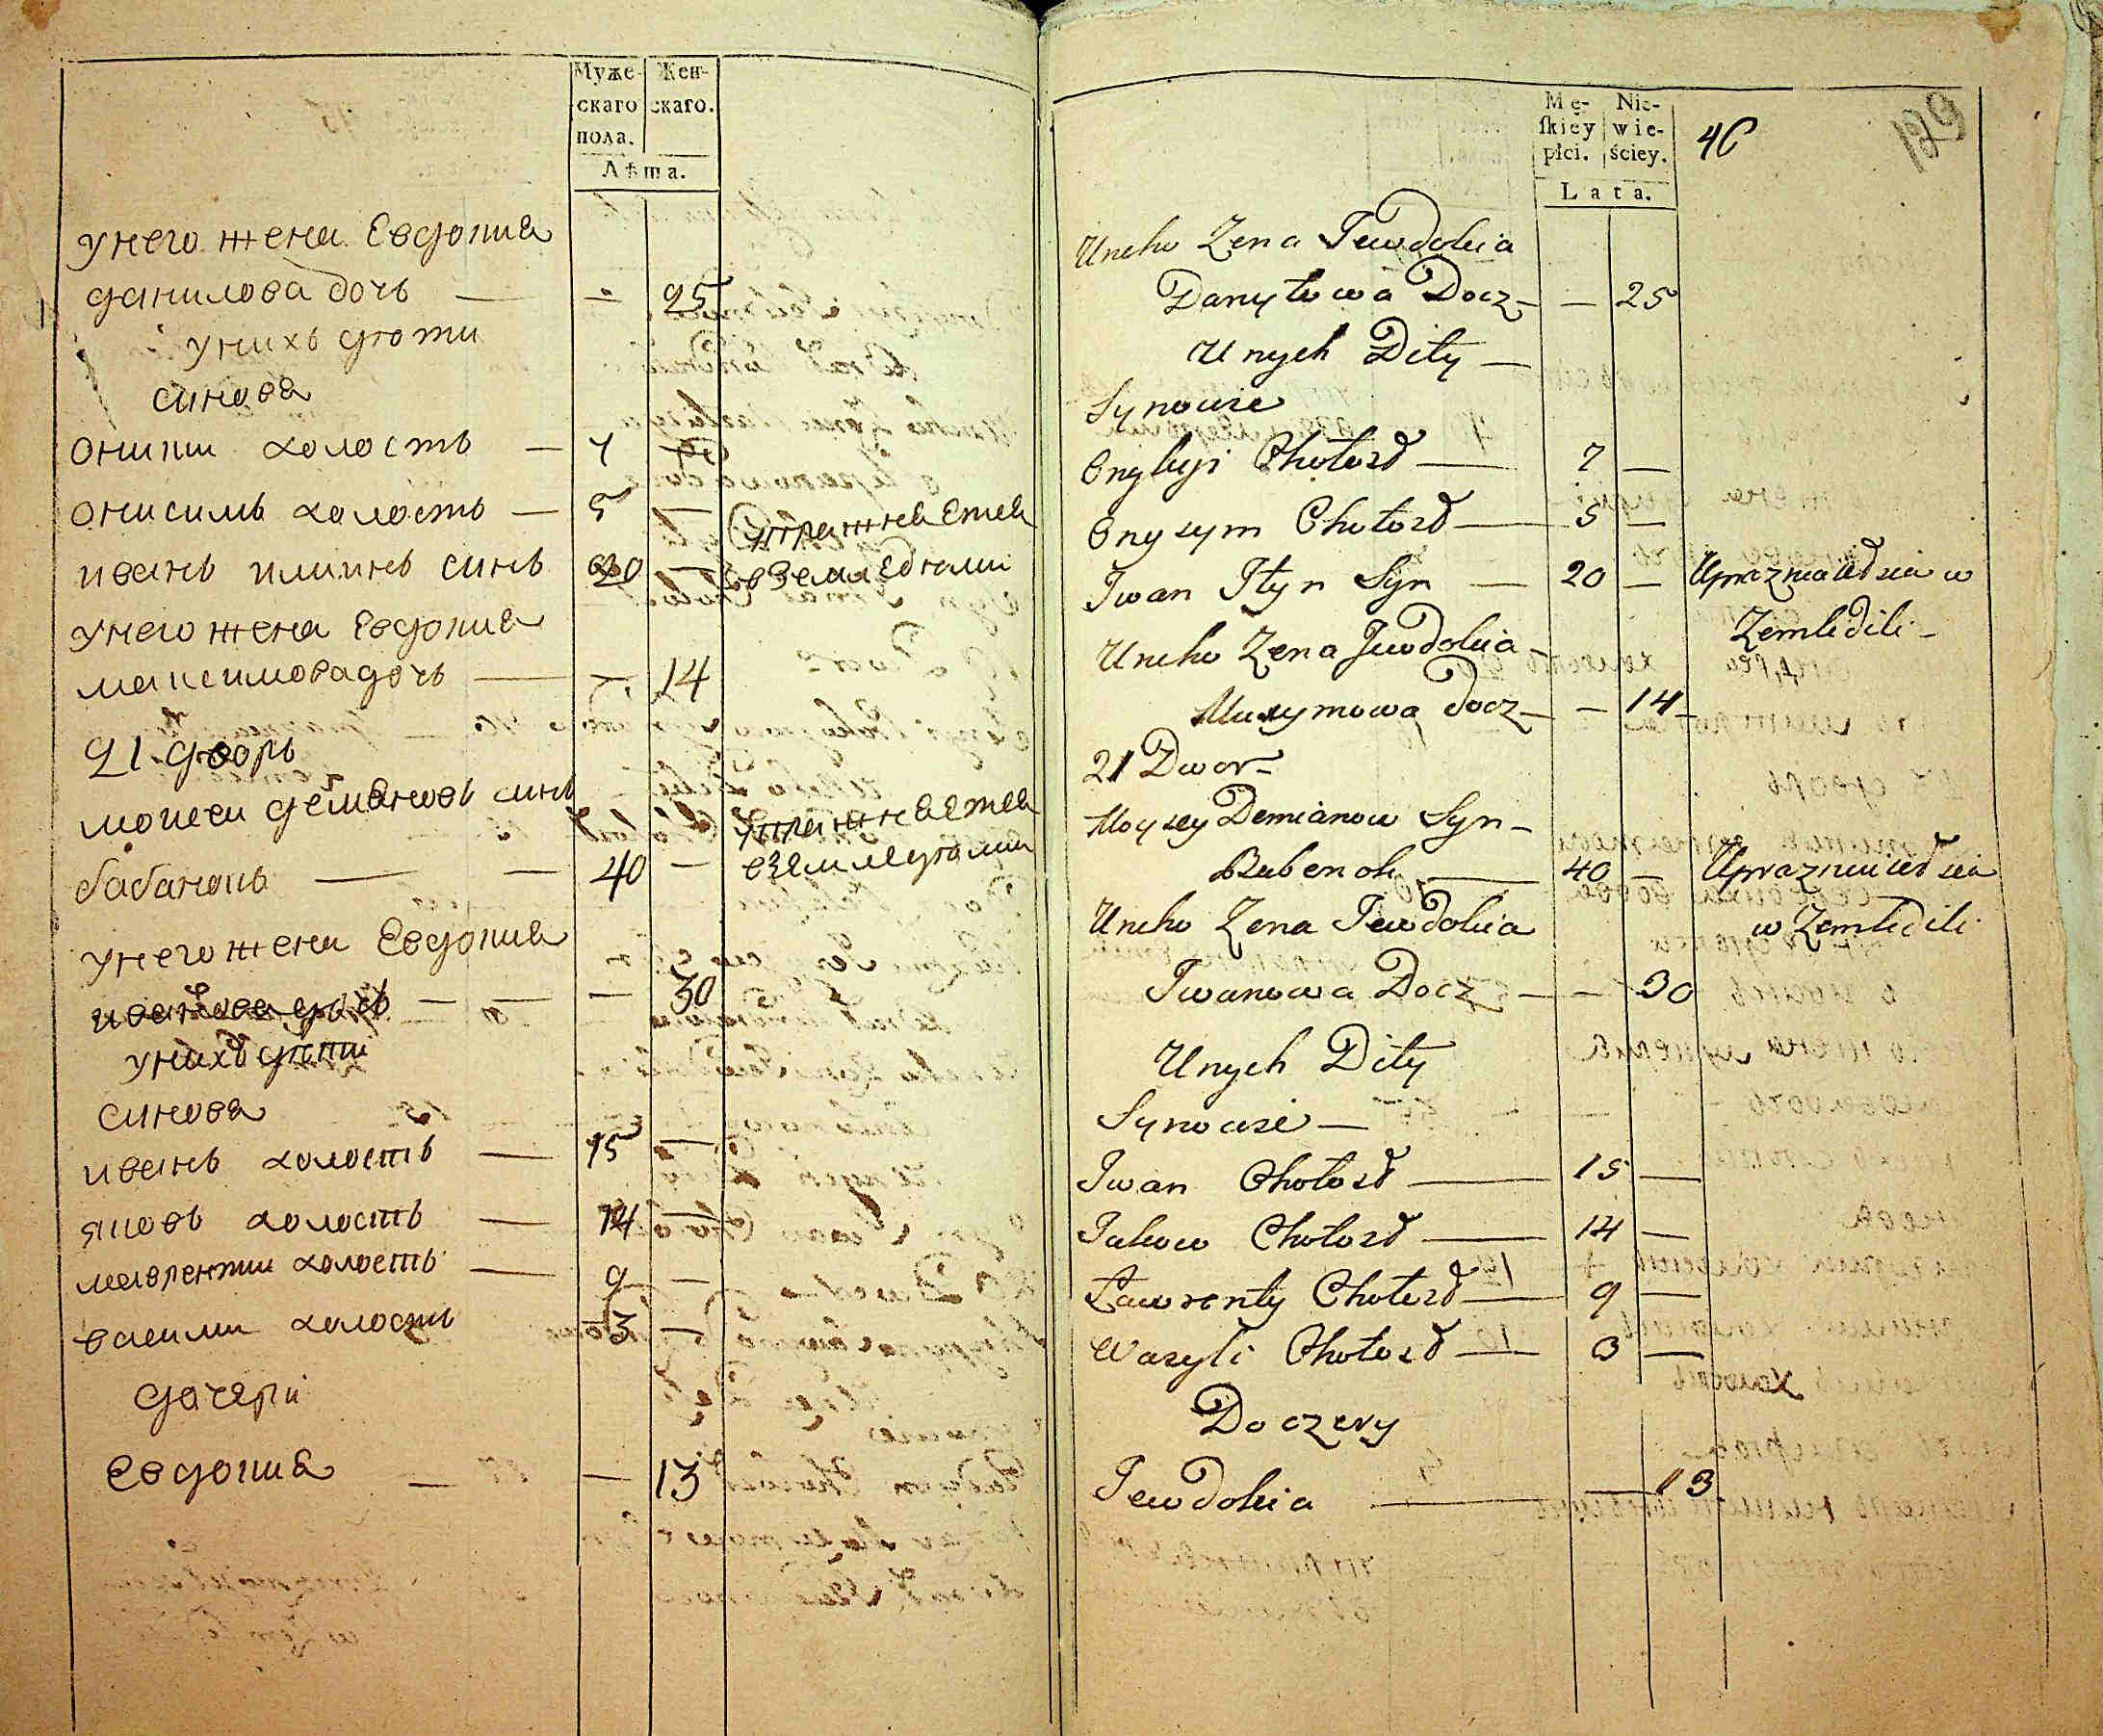 Муже-
скаго
пола.
Жен-
скаго.
Лѣта.
унего жена Евдокиа
данилова дочь — — 25
унихъ дѣти
синова
оники холостъ — 7 —
онисимъ холостъ — 5 —
иванъ илиинъ синъ 20 — упражнаетса
вземледѣлии
унего жена Евдокиа
максимова дочь — — 14
21 дворъ
моисеи демяновъ синъ
бабанокъ — — 40 — упражнаетса
вземледѣлии
унего жена Евдокиа
иванова дочь — — — 30
унихъ дѣти
синова
иванъ холостъ — 15 —
яковъ холостъ — 14 —
лаврентии холостъ — 9 —
василии холостъ 3 —
дочери
Евдокиа — — 13
Mę-
ſkiéy
płci.
Nie-
wie-
ściey.
Lata.
40
189
Uneho Zena Jewdokia
Danyłowa Docz — — 25
Unych Dity —
Synowie
Onykyi Chołosd — 7 —
Onysym Chołosd — 5 —
Iwan Iłyn Syn — 20 — Uprazniaiedsia w
Zemledili —
Uneho Zena Jewdokia —
Maxymowa Docz — — 14 —
21 Dwor —
Moysey Demianow Syn —
Babenok — 40 — Uprazniaiedsia
w Zemledili
Uneho Zena Jewdokia
Iwanowa Docz — — 30
Unych Dity
Synowie —
Iwan Chołosd — 15 —
Jakow Chołosd — 14 —
Ławrenty Chołosd — 9 —
Wasyli Chołosd — 3 —
Doczery
Jewdokia — — 13